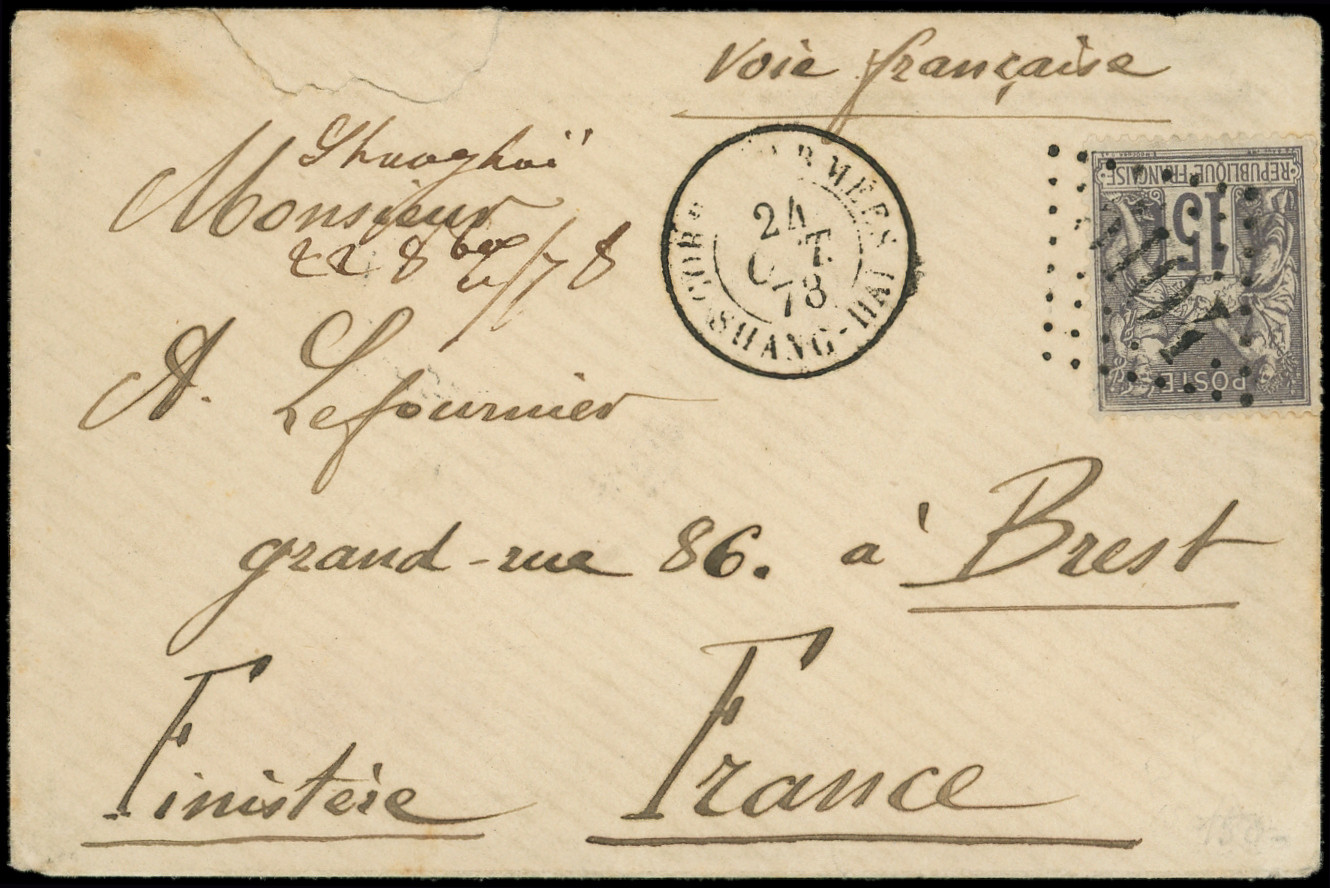 voie française
Shanghaï
Monsieur
22 8bre/78
A. Lefournier
grand-rue 86. à Brest
Finistère France
CORR ARMÉES
24
OCT.
78
SHANG-HAI
REPUBLIQUE FRANÇAISE
15
POSTES
150-